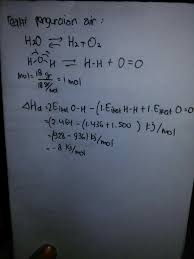 Reaksi penguraian air :
H2O ⇌ H2 + O2
H-O-H ⇌ H-H + O=O
mol = 18 gr / 18 gr/mol = 1 mol
ΔHd = 2 E ikat O-H - (1. E ikat H-H + 1. E ikat O=O)
= (2.464 - (1.436 + 1.500) kJ/mol
= (928 - 936) kJ/mol
= -8 kJ/mol